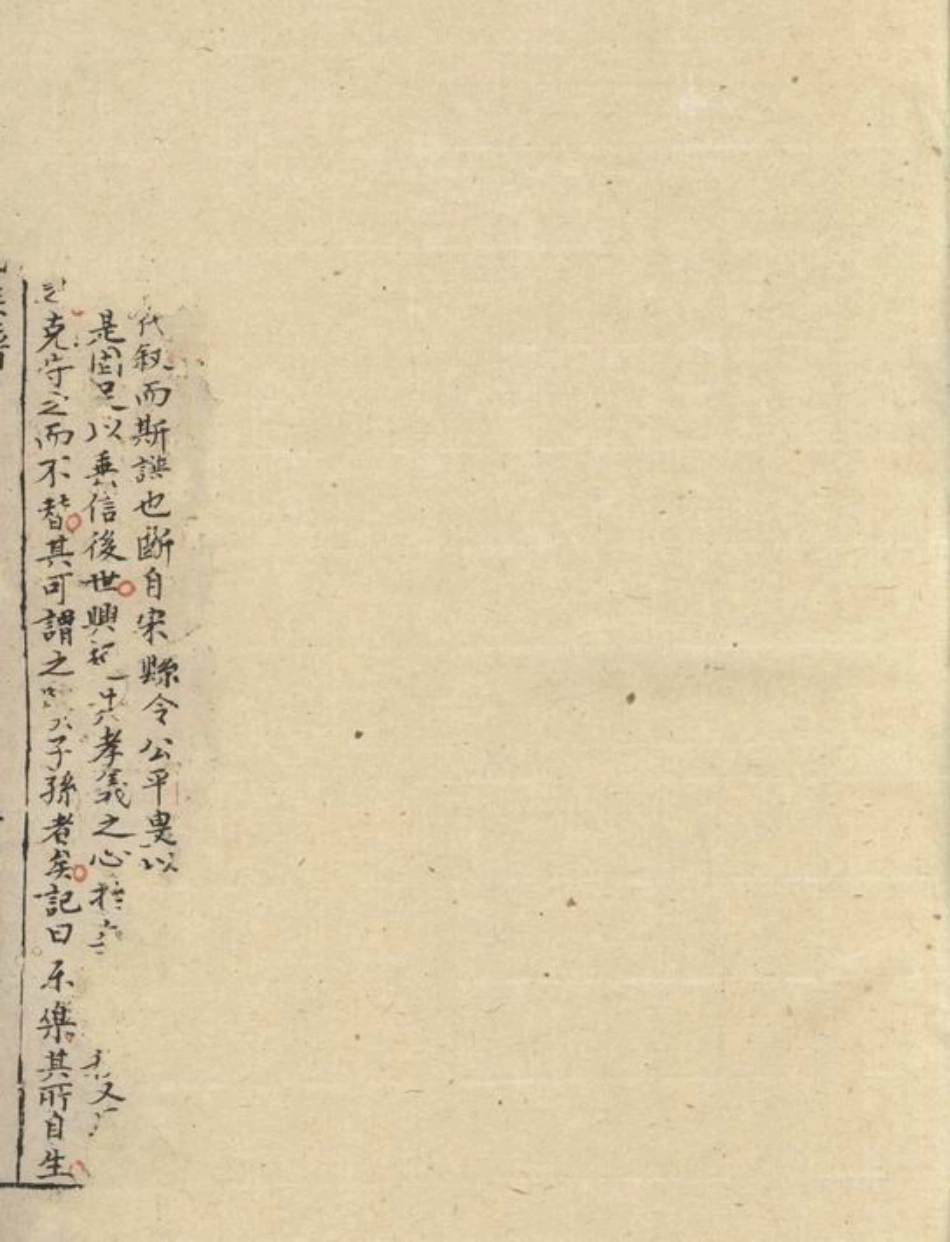 代叙而斯譔也断自宋縣令公平㕥以
是固足以垂信後世興起其孝義之心於
又
克守之而不替其可謂之子孫者矣記曰乐樂其所自生